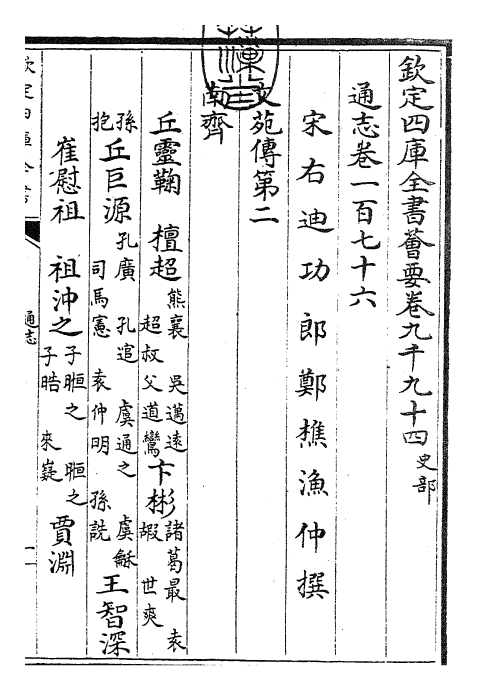 欽定四庫全書薈要卷九千九十四 史部
通志卷一百七十六
宋右迪功郎鄭樵漁仲撰
文苑傳第二
南齊
丘靈鞠 檀超 熊襄 吳邁遠 超叔父道鸞 卞彬 諸葛最 袁嘏 世爽
孫抱 丘巨源 孔廣 孔逭 虞通之 虞龢 司馬憲 袁仲明 孫詵 王智深
崔慰祖 祖沖之 子暅之 暅之子晧 來嶷 賈淵
欽定四庫全書
通志
一